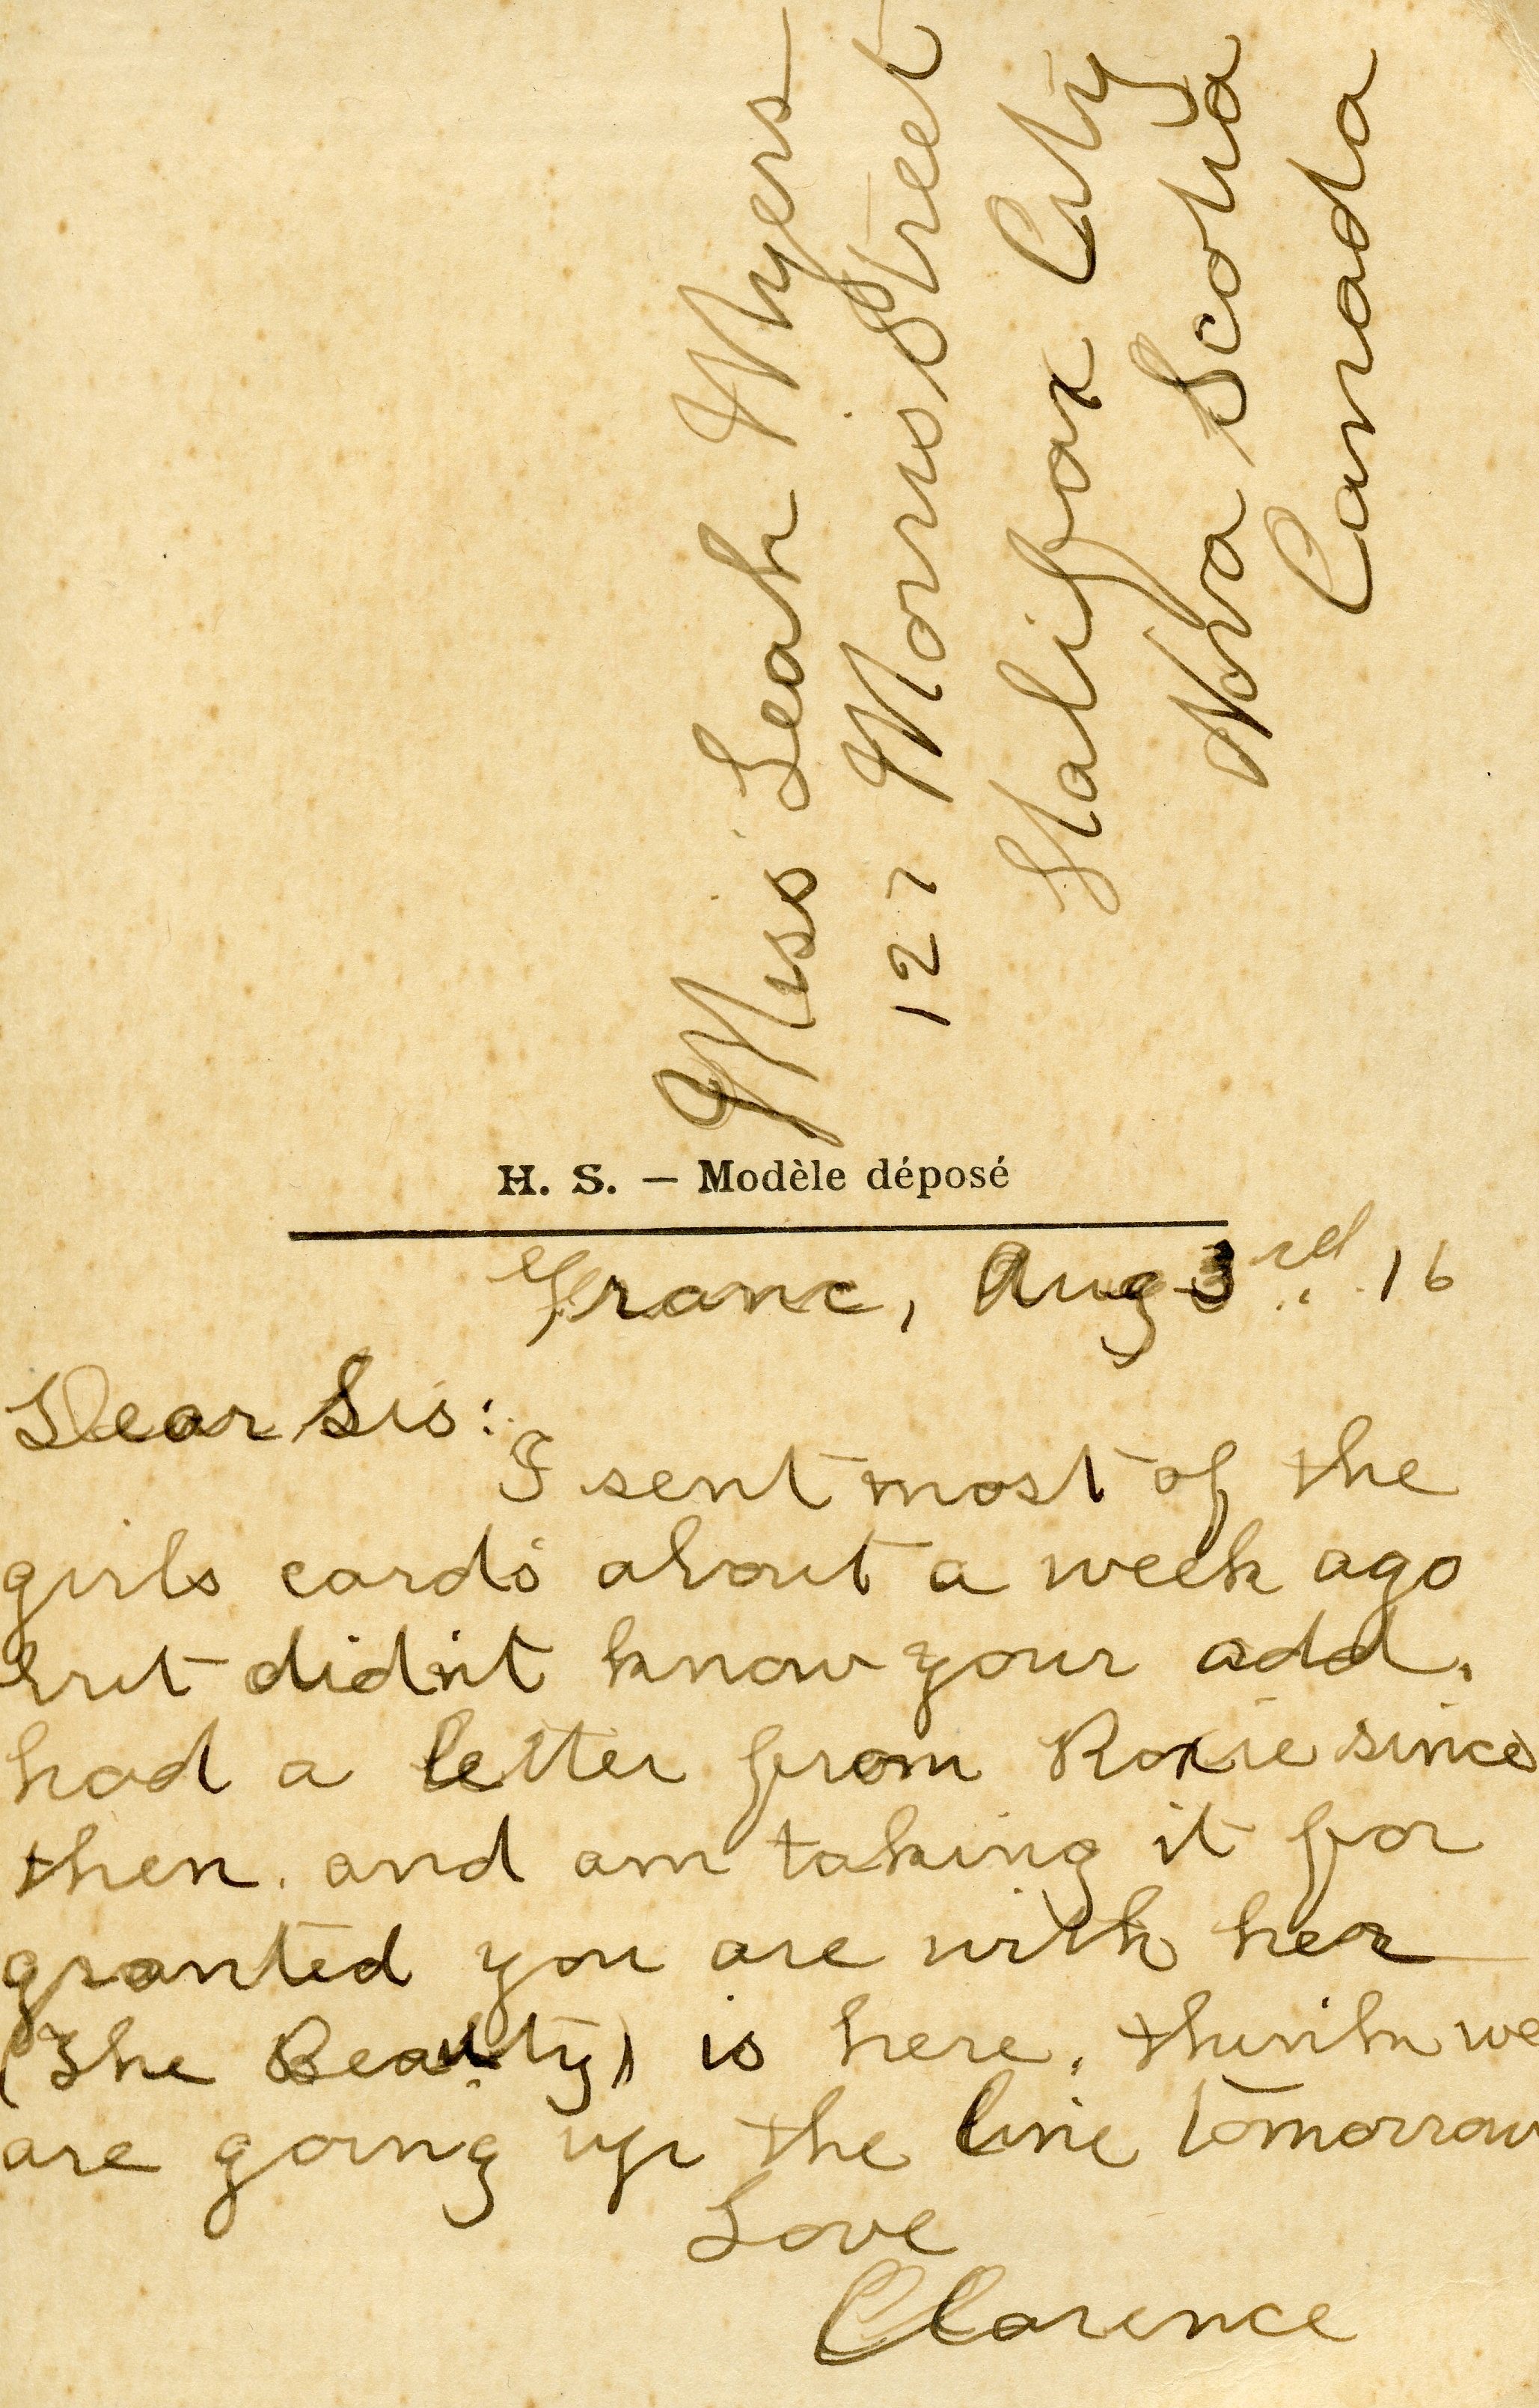 Miss Leah Myers
127 Morris Street
Halifax City
Nova Scotia
Canada
H. S. — Modèle déposé
Franc, Aug 3rd. 16
Dear Sis:
I sent most of the
girls cards about a week ago
but didn't know your add.
had a letter from Roxie since
then. and am taking it for
granted you are with her
(The Beauty) is here. think we
are going up the line tomorrow
Love
Clarence